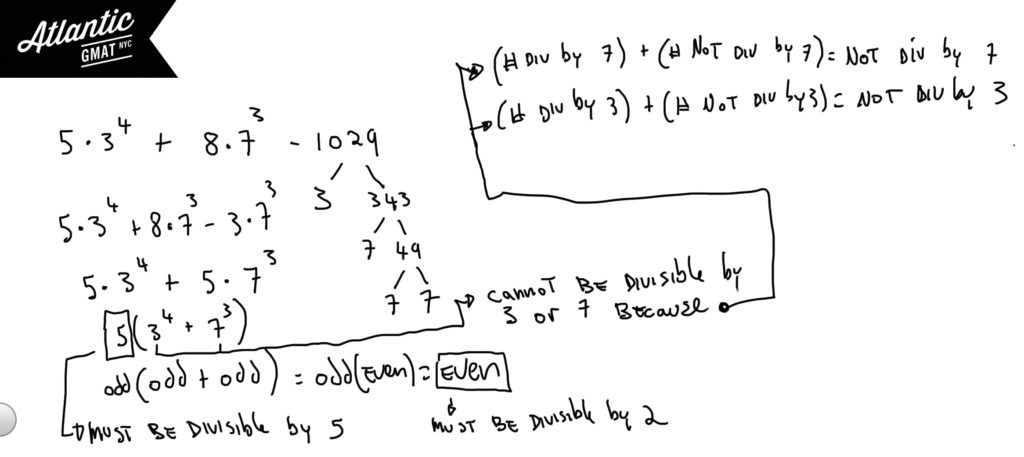 Atlantic
GMAT NYC
(# DIV by 7) + (# NOT DIV by 7) = NOT DIV by 7
(# DIV by 3) + (# NOT DIV by 3) = NOT DIV by 3
5·3⁴ + 8·7³ - 1029
3 343
5·3⁴ + 8·7³ - 3·7³
7 49
5·3⁴ + 5·7³
7 7
CANNOT BE DIVISIBLE by
3 or 7 BECAUSE
5(3⁴ + 7³)
odd(odd + odd) = odd(EVEN) = EVEN
MUST BE DIVISIBLE by 5
MUST BE DIVISIBLE by 2